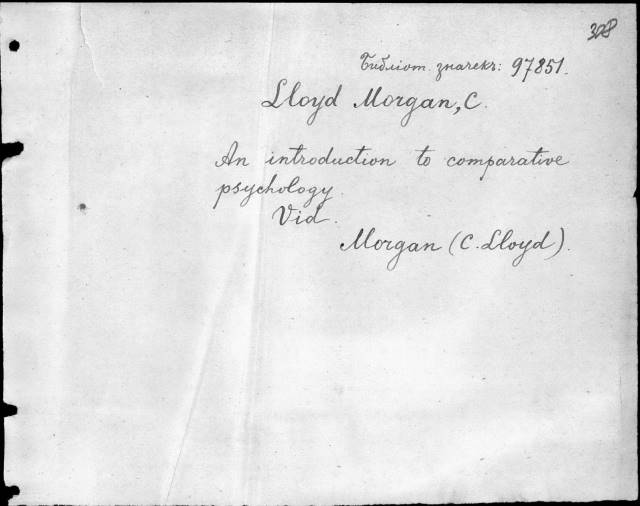 308
Библіот. значекъ: 97851.
Lloyd Morgan, C.
An introduction to comparative
psychology.
Vid.
Morgan (C. Lloyd).